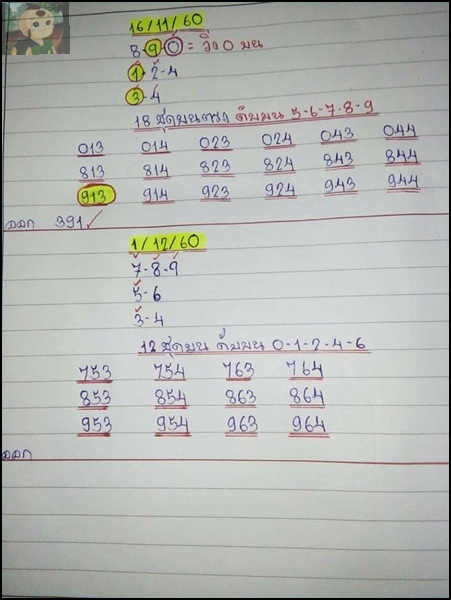 16/11/60
8-9-0 = วิ่ง 0 บน
1-2-4
3-4
18 ชุดบนตรง ดับบน 5-6-7-8-9
013 014 023 024 043 044
813 814 823 824 843 844
913 914 923 924 943 944
ออก 391 ✓
1/12/60
7-8-9
5-6
3-4
12 ชุดบน ดับบน 0-1-2-4-6
753 754 763 764
853 854 863 864
953 954 963 964
ออก